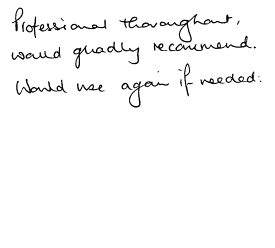 Professional throughout,
would gladly recommend.
Would use again if needed.